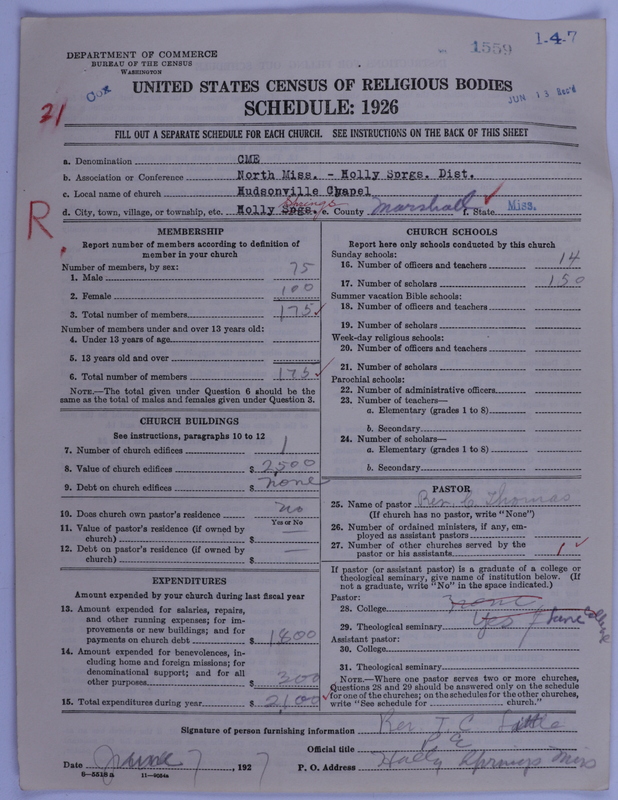 1559
1-4-7
DEPARTMENT OF COMMERCE
BUREAU OF THE CENSUS
WASHINGTON
UNITED STATES CENSUS OF RELIGIOUS BODIES
SCHEDULE: 1926
JUN 13 Rec'd
21
FILL OUT A SEPARATE SCHEDULE FOR EACH CHURCH. SEE INSTRUCTIONS ON THE BACK OF THIS SHEET
a. Denomination CME
b. Association or Conference North Miss. - Holly Sprgs. Dist.
c. Local name of church Hudsonville Chapel
d. City, town, village, or township, etc. Holly Spgs. Springs e. County Marshall f. State Miss.
R.
MEMBERSHIP
Report number of members according to definition of
member in your church
Number of members, by sex:
1. Male 75
2. Female 100
3. Total number of members 175
Number of members under and over 13 years old:
4. Under 13 years of age
5. 13 years old and over
6. Total number of members 175
NOTE.—The total given under Question 6 should be the
same as the total of males and females given under Question 3.
CHURCH BUILDINGS
See instructions, paragraphs 10 to 12
7. Number of church edifices 1
8. Value of church edifices $ 2,500
9. Debt on church edifices $ none
10. Does church own pastor's residence no
Yes or No
11. Value of pastor's residence (if owned by
church) $ —
12. Debt on pastor's residence (if owned by
church) $ —
EXPENDITURES
Amount expended by your church during last fiscal year
13. Amount expended for salaries, repairs,
and other running expenses; for im-
provements or new buildings; and for
payments on church debt $ 1800
14. Amount expended for benevolences, in-
cluding home and foreign missions; for
denominational support; and for all
other purposes $ 300
15. Total expenditures during year $ 2,100
CHURCH SCHOOLS
Report here only schools conducted by this church
Sunday schools:
16. Number of officers and teachers 14
17. Number of scholars 150
Summer vacation Bible schools:
18. Number of officers and teachers
19. Number of scholars
Week-day religious schools:
20. Number of officers and teachers
21. Number of scholars
Parochial schools:
22. Number of administrative officers
23. Number of teachers—
a. Elementary (grades 1 to 8)
b. Secondary
24. Number of scholars—
a. Elementary (grades 1 to 8)
b. Secondary
PASTOR
25. Name of pastor Rev. C. Thomas
(If church has no pastor, write "None")
26. Number of ordained ministers, if any, em-
ployed as assistant pastors
27. Number of other churches served by the
pastor or his assistants 1
If pastor (or assistant pastor) is a graduate of a college or
theological seminary, give name of institution below. (If
not a graduate, write "No" in the space indicated.)
Pastor:
28. College none
29. Theological seminary Yes Lane College
Assistant pastor:
30. College
31. Theological seminary
NOTE.—Where one pastor serves two or more churches,
Questions 28 and 29 should be answered only on the schedule
for one of the churches; on the schedules for the other churches,
write "See schedule for church."
Signature of person furnishing information Rev J. C. Little
Official title P E
Date June 7, 1927 P. O. Address Holly Springs Miss
8-5518a 11-9034a